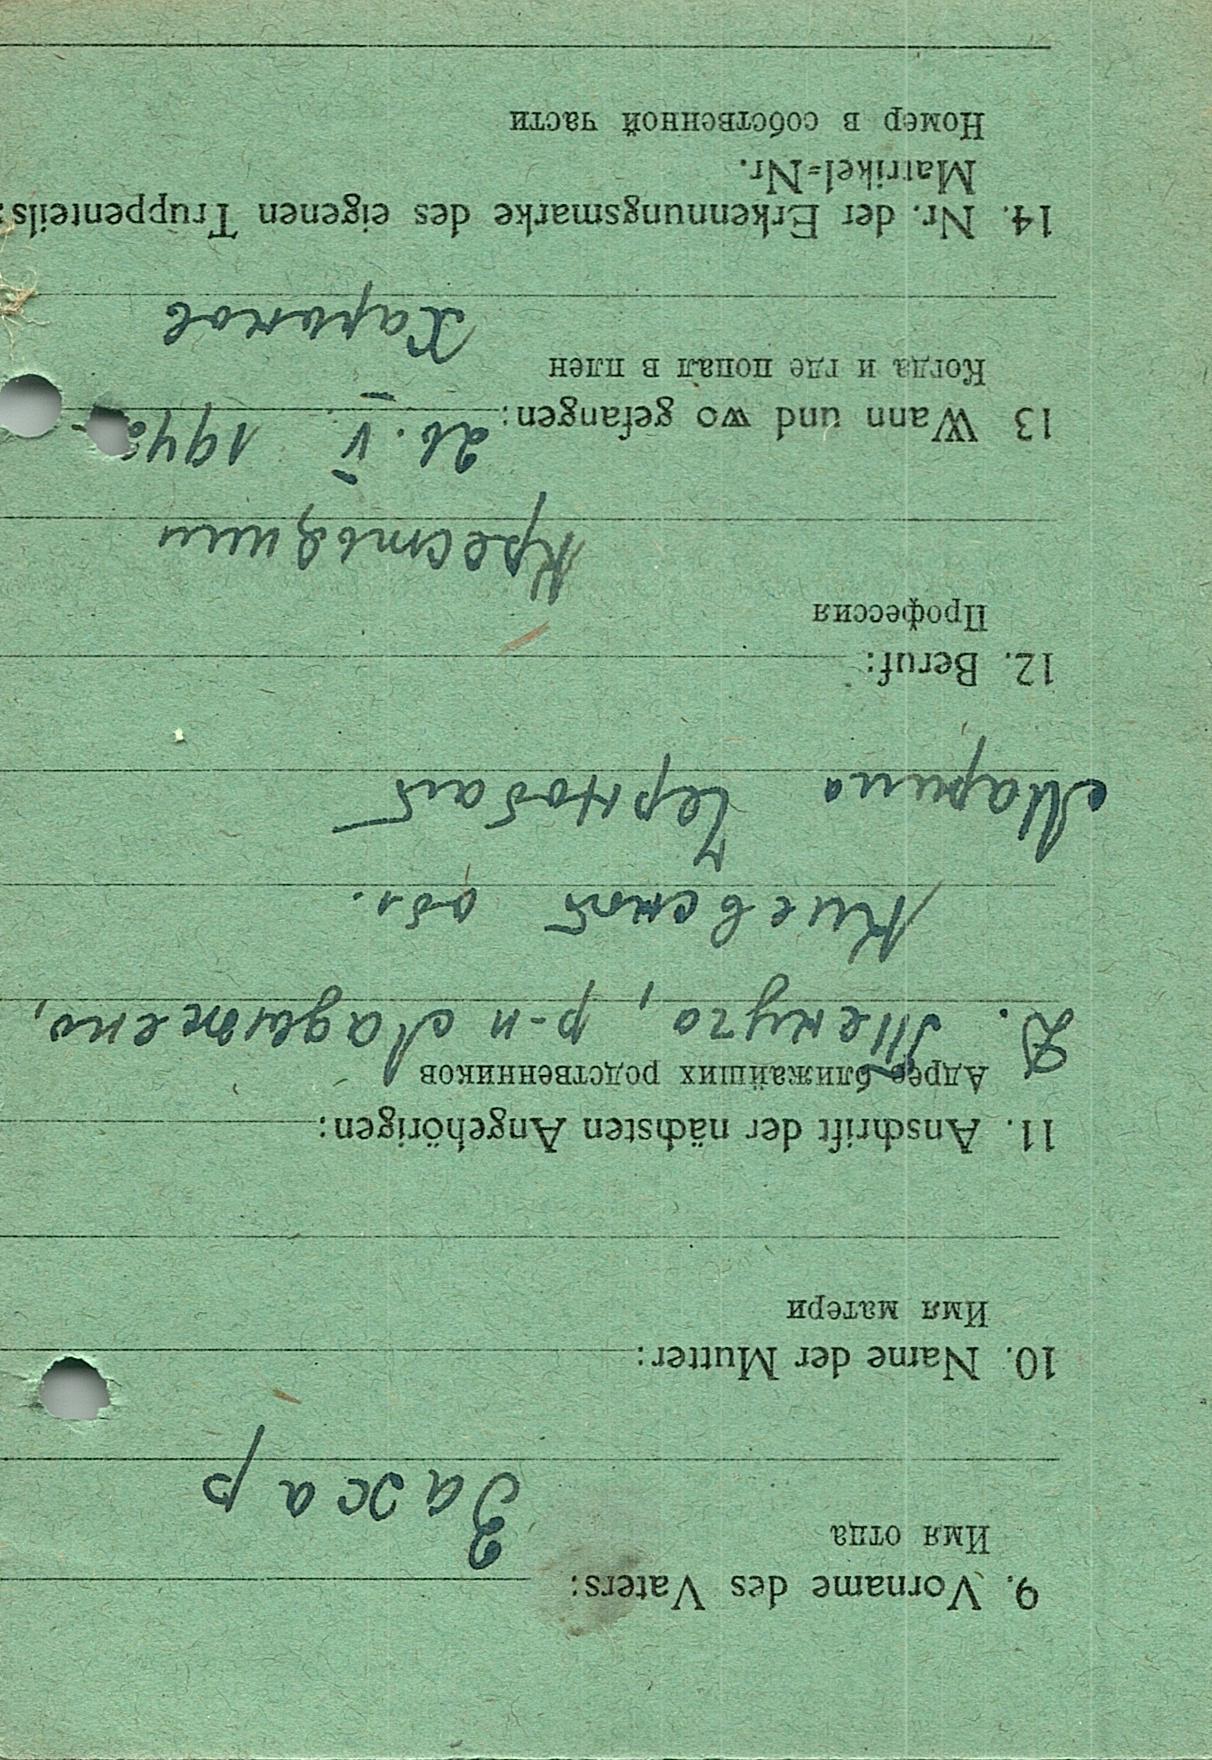 9. Vorname des Vaters:
Имя отца
Захар
10. Name der Mutter:
Имя матери
11. Anschrift der nächsten Angehörigen:
Адрес ближайших родственников
Д. Текуча, р-н
Киевской обл.
Марина Чернобай
12. Beruf:
Профессия
Крестьянин
13 Wann und wo gefangen: 26. V. 1942
Когда и где попал в плен
Харьков
14. Nr. der Erkennungsmarke des eigenen Truppenteils:
Matrikel=Nr.
Номер в собственной части